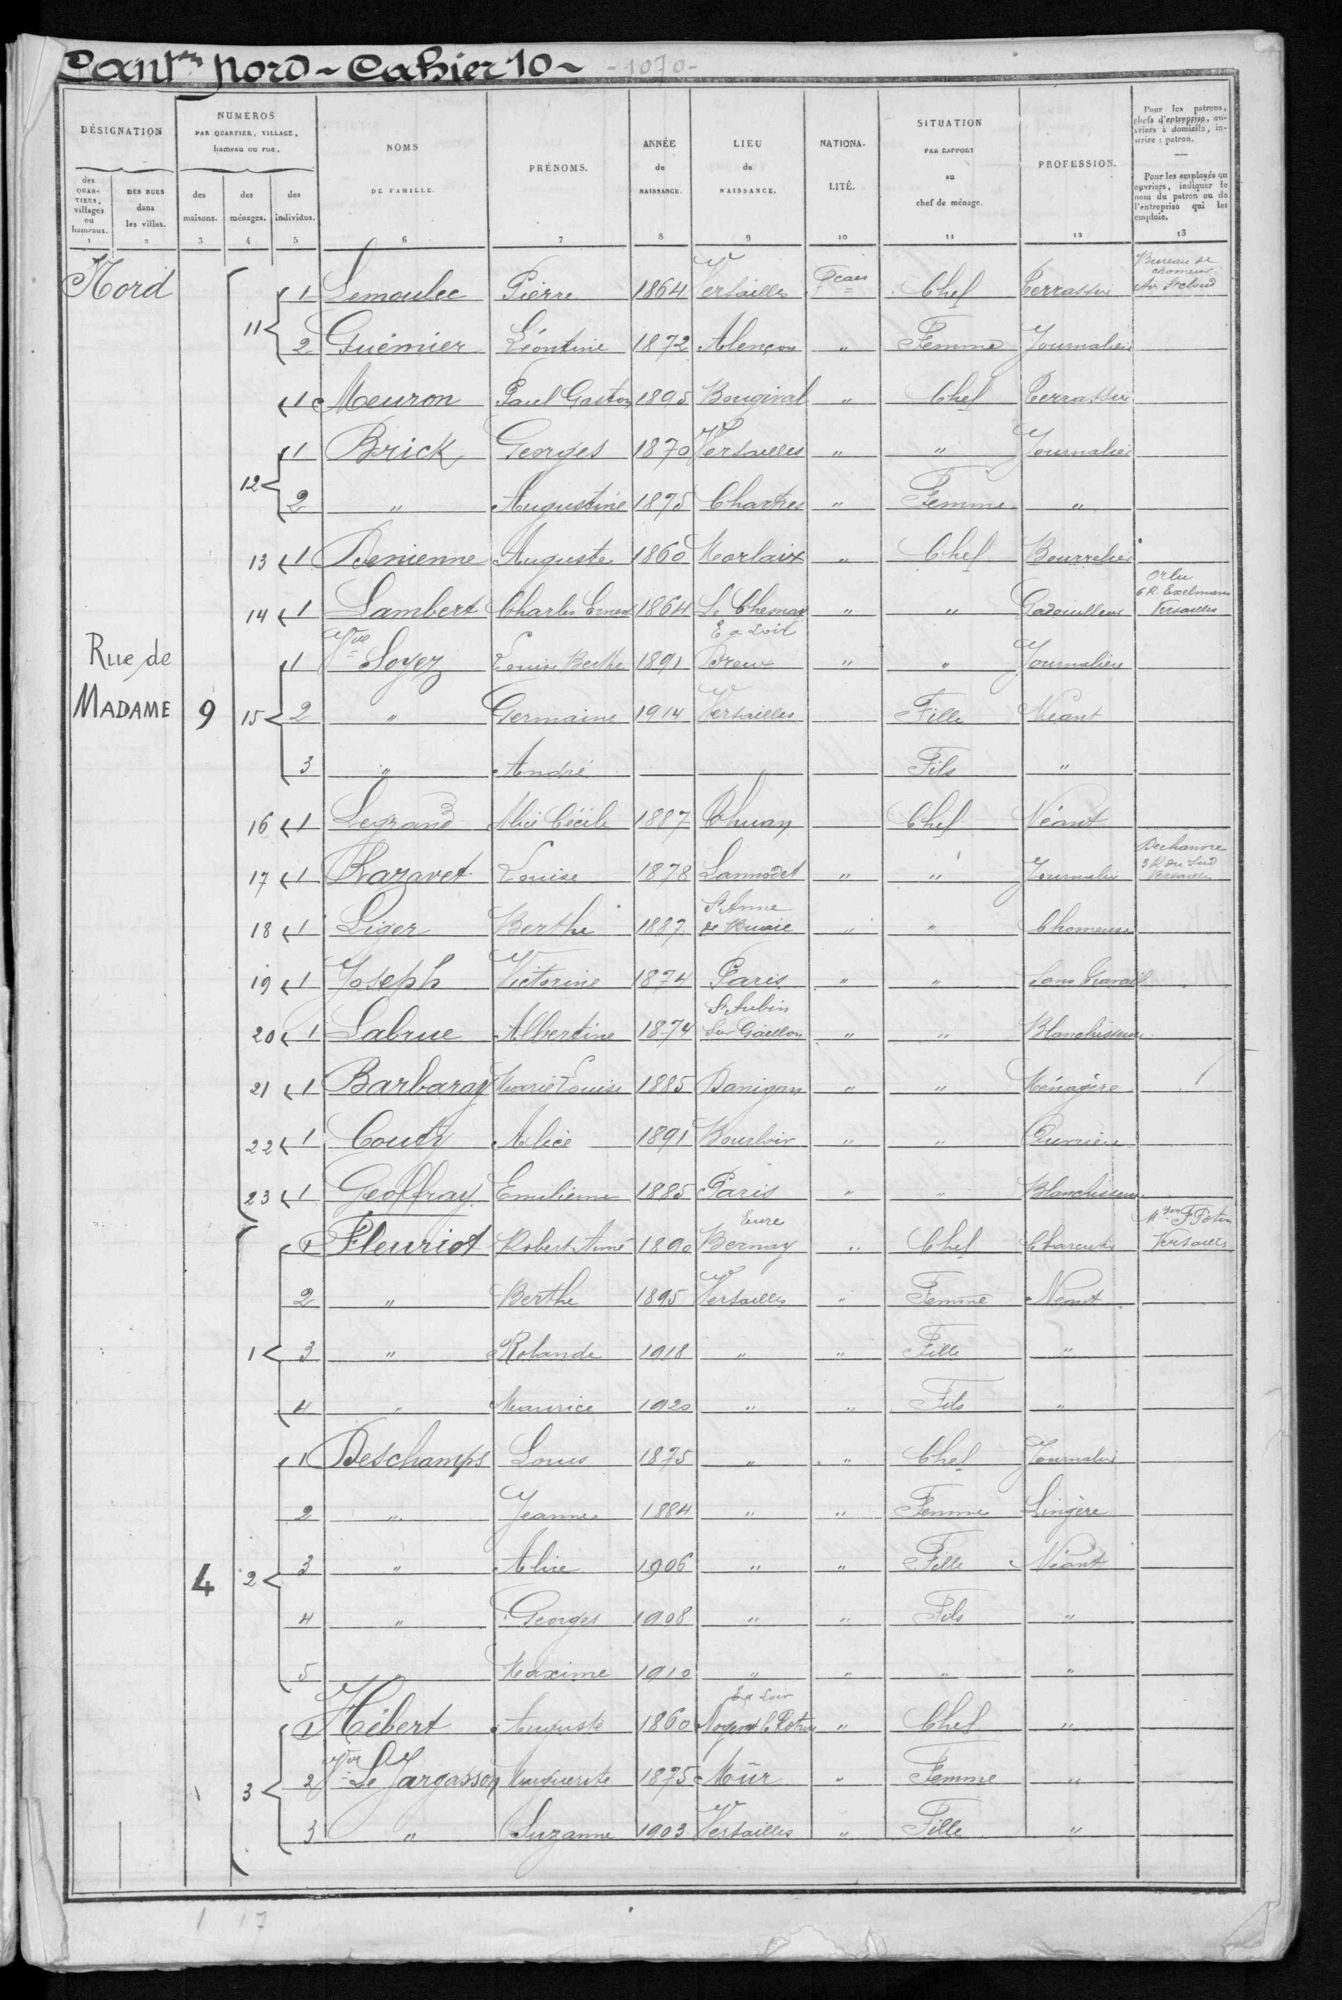 Cant^on Nord - Cahier 10 - -1070-
DÉSIGNATION
des QUARTIERS, villages ou hameaux. 1
DES RUES dans les villes. 2
NUMÉROS PAR QUARTIER, VILLAGE, hameau ou rue.
des maisons. 3
des ménages. 4
des individus. 5
NOMS DE FAMILLE. 6
PRÉNOMS. 7
ANNÉE de NAISSANCE. 8
LIEU de NAISSANCE. 9
NATIONALITÉ. 10
SITUATION PAR RAPPORT au chef de ménage. 11
PROFESSION. 12
Pour les patrons, chefs d'entreprise, ouvriers à domicile, inscrire : patron.
Pour les employés ou ouvriers, indiquer le nom du patron ou de l'entreprise qui les emploie. 13
Nord 11 1 Lemoulec Pierre 1864 Versailles Fcaise Chef Terrassier Bureau de chomeur Av. St Cloud
2 Guémier Léontine 1872 Alençon " Femme Journalière
1 Meuron Paul Gaston 1895 Bougival " Chef Terrassier
12 1 Brick Georges 1870 Versailles " " Journalier
2 " Augustine 1875 Chartres " Femme "
13 1 Denienne Auguste 1860 Morlaix " Chef Bourrelier
14 1 Lambert Charles Ernest 1864 " " Orlu 6 R. Exelmans Versailles
Rue de MADAME 9 15 1 Vve Loyez Louise Berthe 1891 E a Loir Dreux " " Journalière
2 " Germaine 1914 Versailles Fille Néant
3 " André Fils "
16 1 Legrand Alice Cécile 1887 Thuan Chef Néant
17 1 Razavet Louise 1878 Lannodet " " Journalière Dechanvre 3 R du Sud Versailles
18 1 Liger Berthe 1887 St Anne de Buaie " " Chomeuse
19 1 Joseph Victorine 1874 Paris " " Sans travail
20 1 Labrue Albertine 1874 St Aubin sur Gaillon " " Blanchisseuse
21 1 Barbaray Marie Louise 1885 Danigan " " Ménagère
22 1 Couty Alice 1891 " " Ouvrière
23 1 Geoffray Emilienne 1885 Paris " " Blanchisseuse
4 1 1 Fleuriot Robert Aimé 1890 Eure Bernay " Chef Charcutier Mson F Potin Versailles
2 " Berthe 1895 Versailles " Femme Néant
3 " Rolande 1918 " " Fille "
4 " Maurice 1920 " " Fils "
2 1 Deschamps Louis 1875 " " Chef Journalier
2 " Jeanne 1884 " " Femme Lingère
3 " Alice 1906 " " Fille Néant
4 " Georges 1908 " " Fils "
5 " Maxime 1910 " " " "
3 1 Hébert Auguste 1860 E a Loir Nogent le Rotrou " Chef "
2 Vve Le Jargasson Marguerite 1875 Mûr " Femme "
3 " Suzanne 1903 Versailles " Fille "
1 17